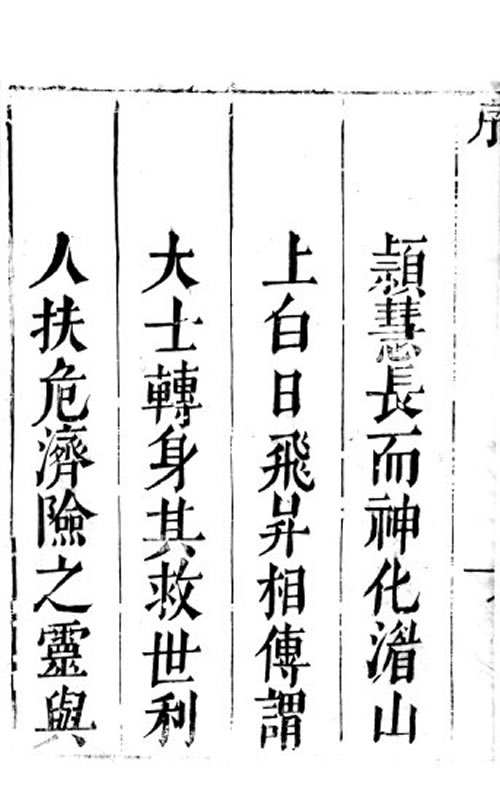 序
頴慧長而神化湄山
上白日飛昇相傳謂
大士轉身其救世利
人扶危濟險之靈與